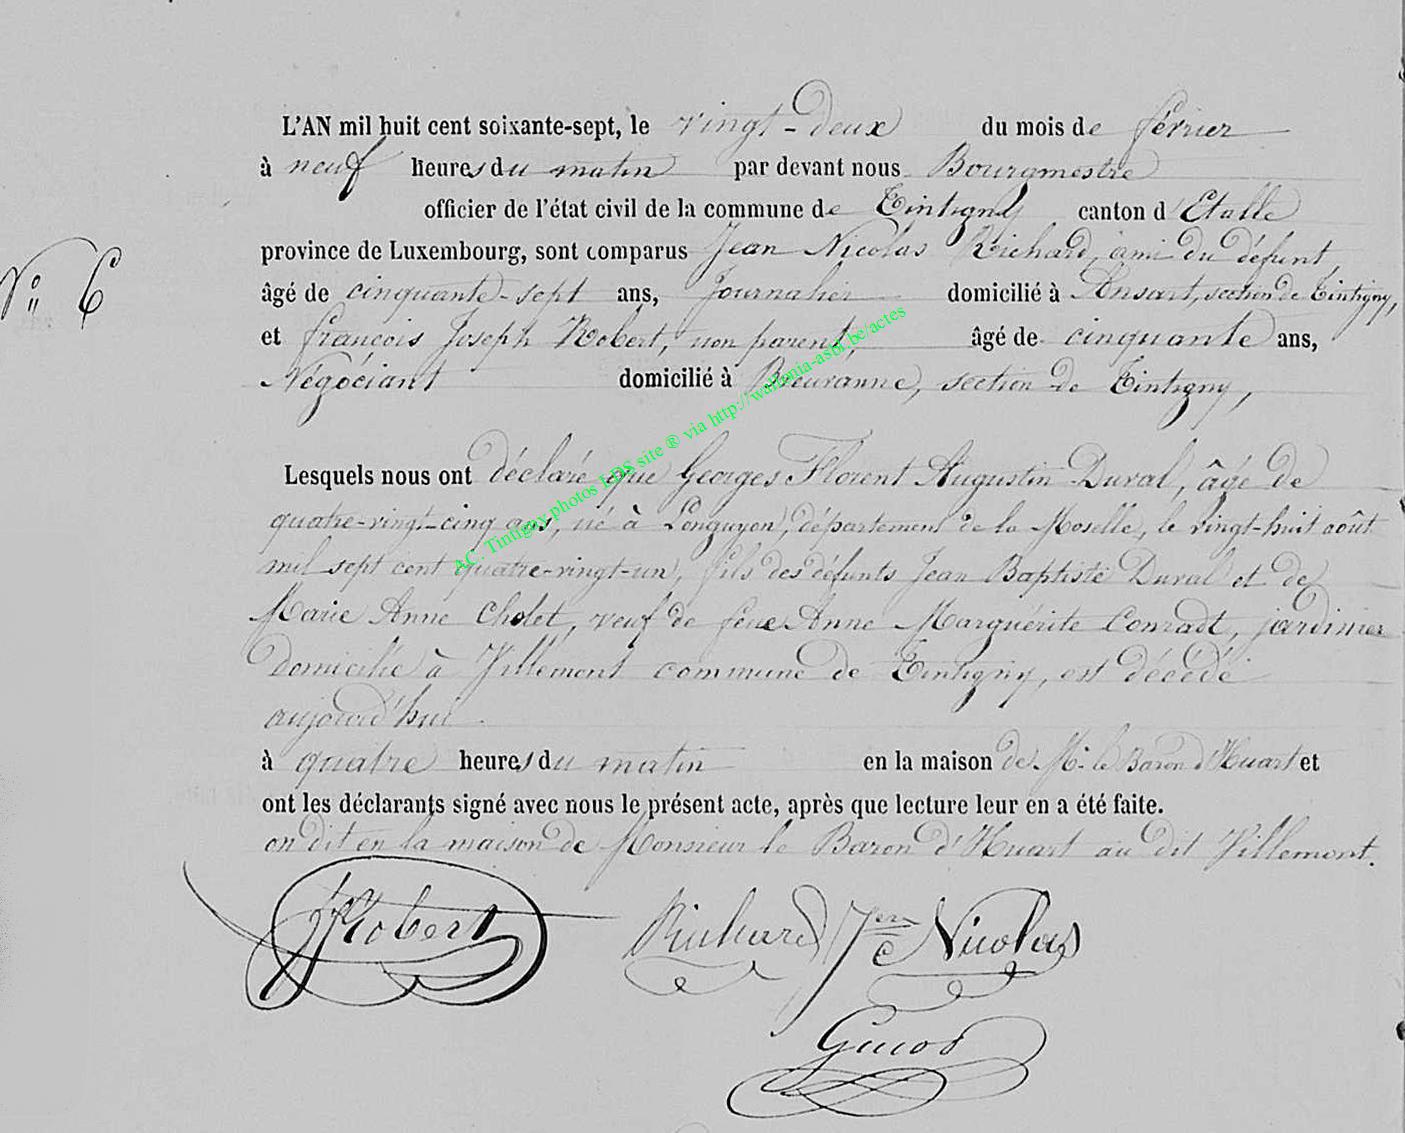 L'AN mil huit cent soixante-sept, le vingt-deux du mois de février
à neuf heures du matin par devant nous Bourgmestre
officier de l'état civil de la commune de Tintigny canton d'Etalle
N° 6
province de Luxembourg, sont comparus Jean Nicolas Richard, ami du défunt,
âgé de cinquante-sept ans, Journalier domicilié à Ansart, section de Tintigny,
et françois Joseph Robert, non parent, âgé de cinquante ans,
Négociant domicilié à Breuvanne, section de Tintigny,
A.C. Tintigny photos LDS site ® via http://wallonia-asbl.be/actes
Lesquels nous ont déclaré que Georges Florent Augustin Duval, âgé de
quatre-vingt-cinq ans, né à Longuyon, département de la Moselle, le vingt-huit août
mil sept cent quatre-vingt-un, fils des défunts Jean Baptiste Duval et de
Marie Anne Cholet, veuf de feue Anne Marguérite Conradt, jardinier
domicilié à Villemont commune de Tintigny, est décédé
aujourd'hui
à quatre heures du matin en la maison de Mr. le Baron d'Huart et
ont les déclarants signé avec nous le présent acte, après que lecture leur en a été faite.
on dit en la maison de Monsieur le Baron d'Huart au dit Villemont.
Robert Richard Nicolas